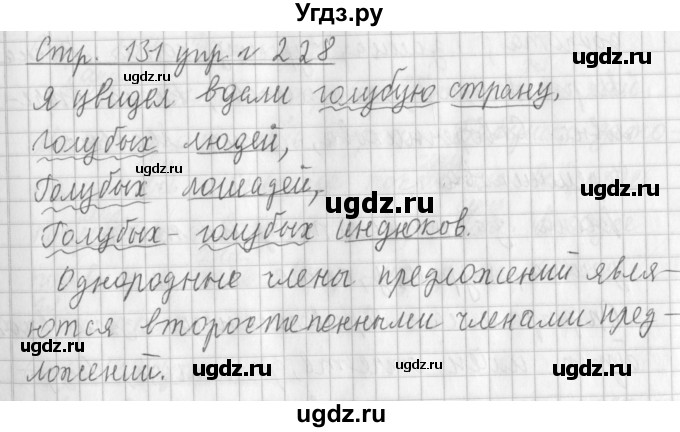 Угдз.ру
Стр. 131 упр № 228
ugdz.ru ugdz.ru
Я увидел вдали голубую страну,
голубых людей,
ugdz.ru ugdz.ru
Голубых лошадей,
ugdz.ru
Голубых- голубых индюков.
ugdz.ru
Однородные члены предложений явля-
ются второстепенными членами пред-
ugdz.ru ugdz.ru
ложений.
ugdz.ru
ugdz.ru